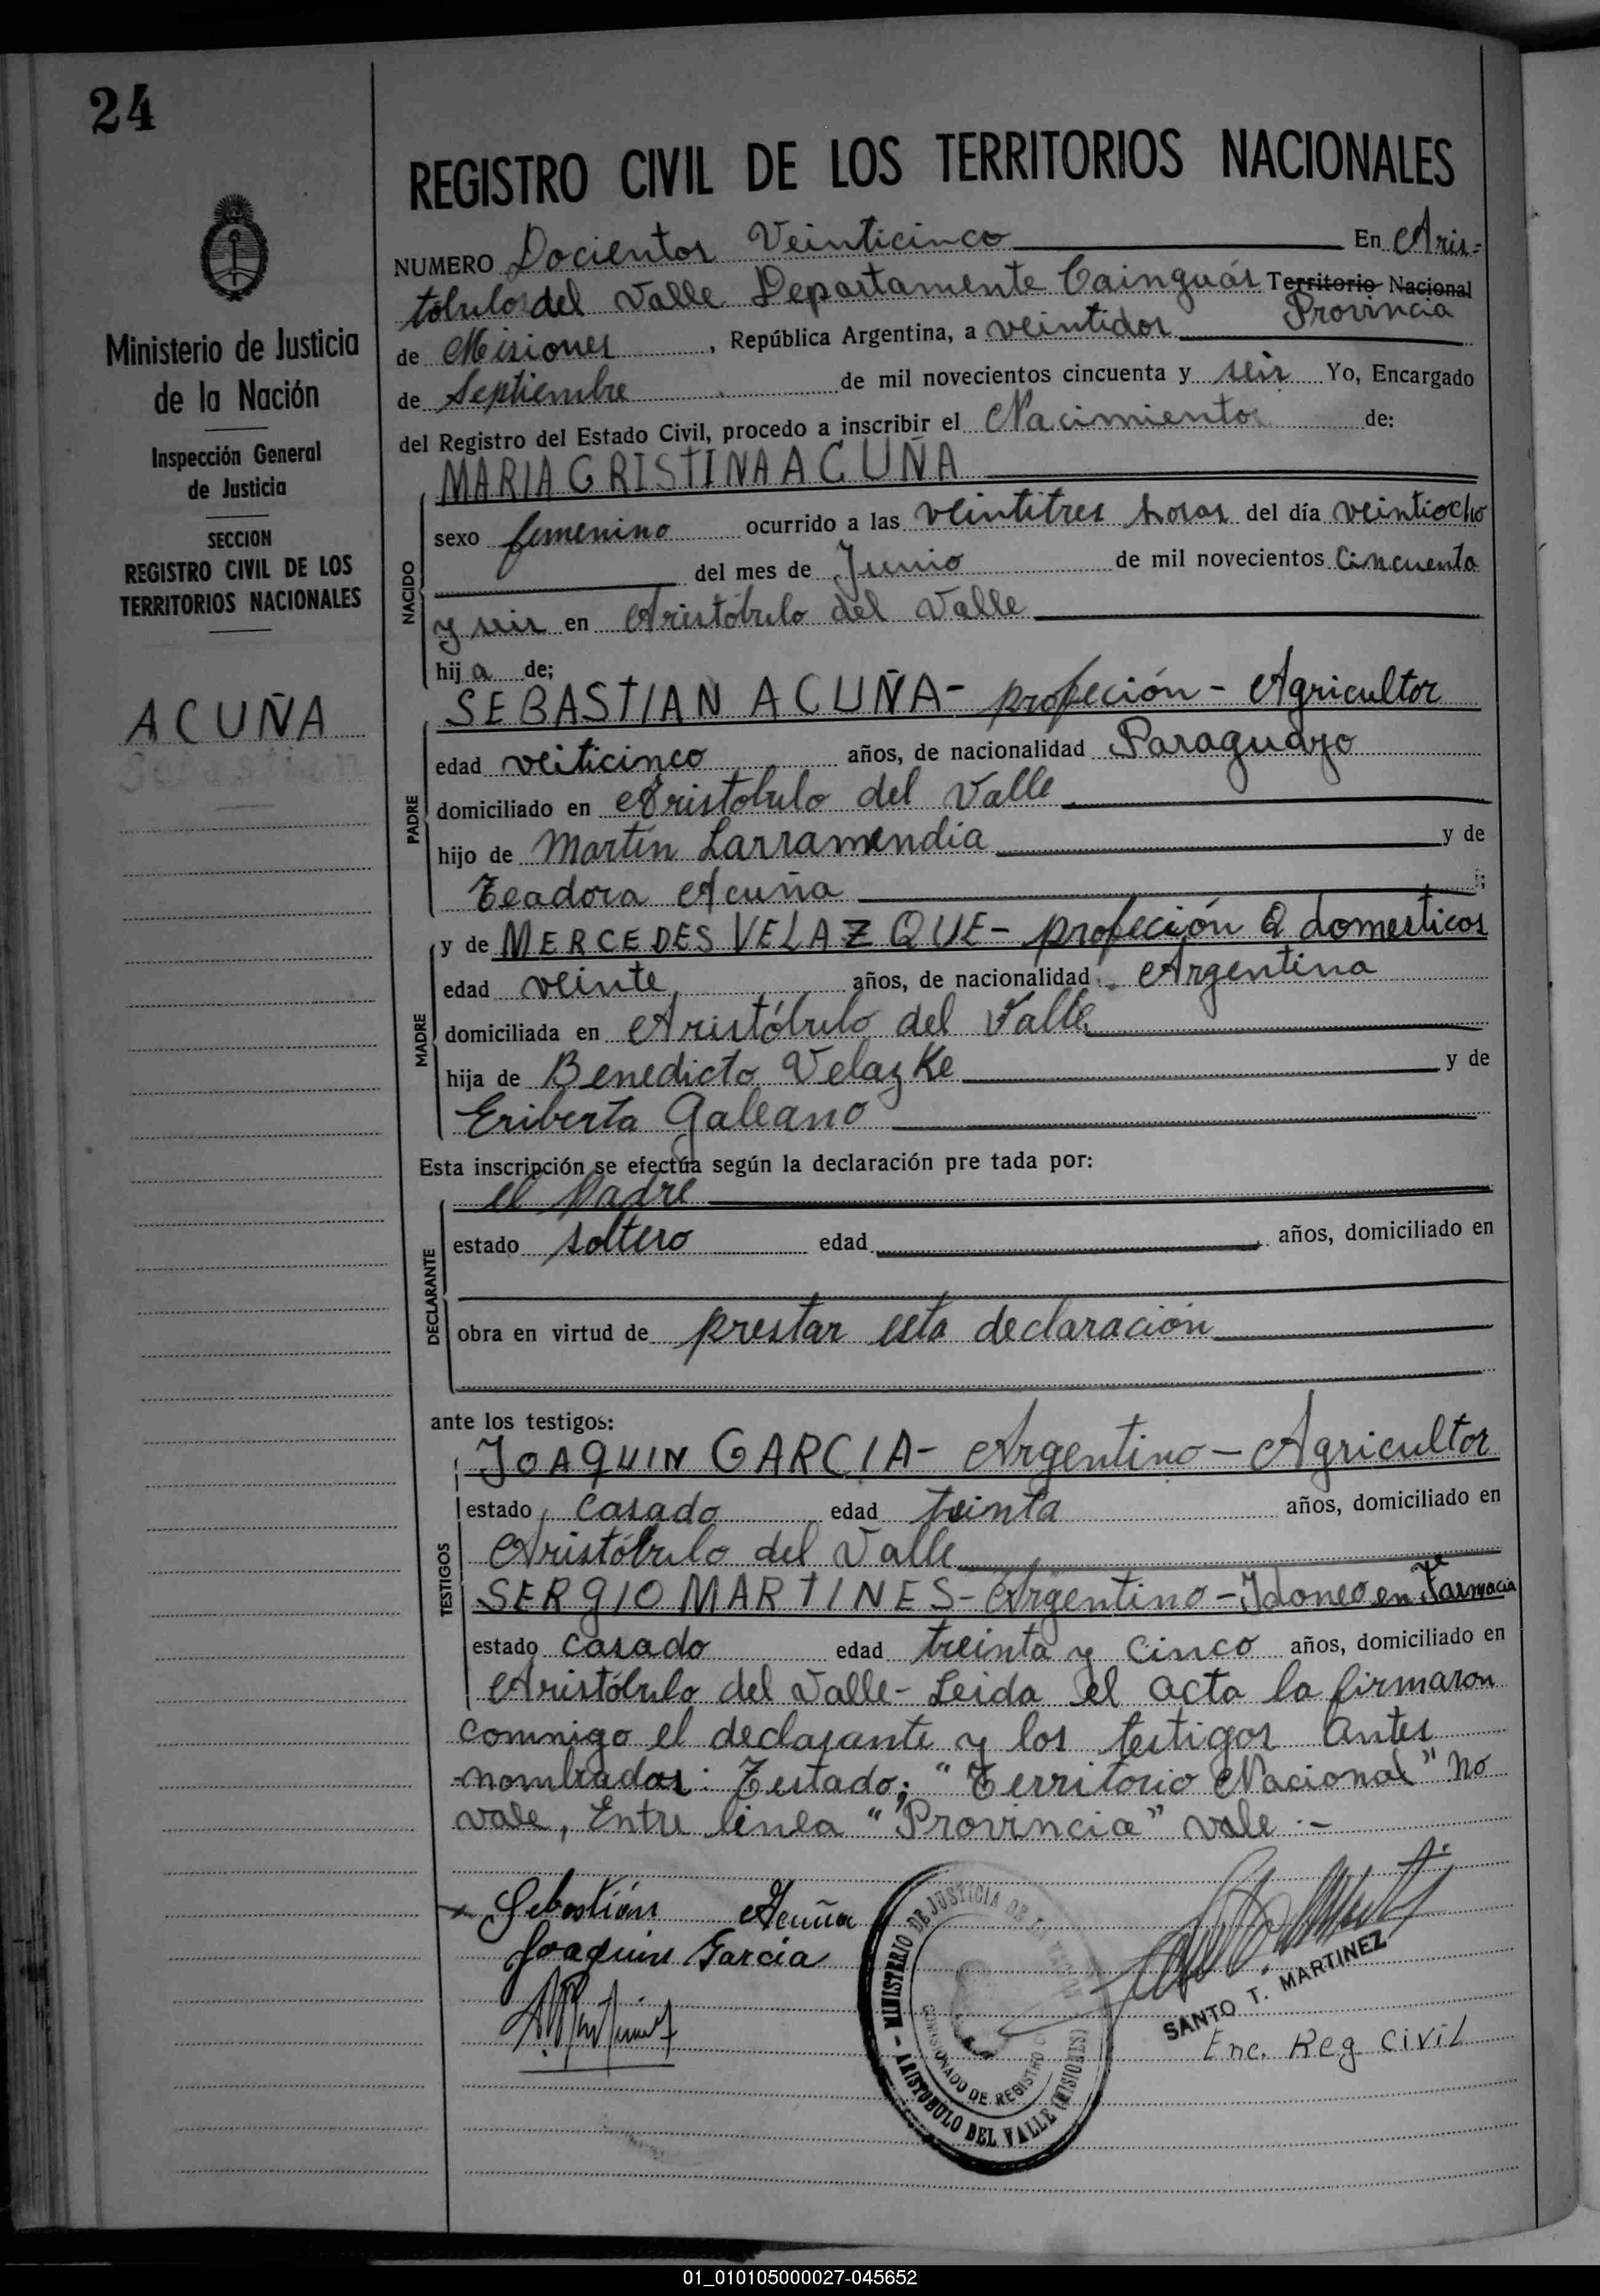 24
Ministerio de Justicia
de la Nación
Inspección General
de Justicia
SECCION
REGISTRO CIVIL DE LOS
TERRITORIOS NACIONALES
ACUÑA
REGISTRO CIVIL DE LOS TERRITORIOS NACIONALES
NUMERO Docientos Veinticinco En Aris=
tóbulo del Valle Departamente Cainguás Territorio Nacional
Provincia
de Misiones, República Argentina, a veintidos
de Septiembre de mil novecientos cincuenta y seis Yo, Encargado
del Registro del Estado Civil, procedo a inscribir el Nacimiento de:
MARIA GRISTINA ACUÑA
NACIDO
sexo femenino ocurrido a las veintitres horas del día veintiocho
del mes de Junio de mil novecientos Cincuenta
y seis en Aristóbulo del Valle
hij a de;
SEBASTIAN ACUÑA- profeción - Agricultor
PADRE
edad veiticinco años, de nacionalidad Paraguayo
domiciliado en Aristobulo del Valle
hijo de Martín Larramendia y de
Teadora Acuña ;
y de MERCEDES VELAZQUE- profeción Q domesticos
MADRE
edad veinte años, de nacionalidad Argentina
domiciliada en Aristóbulo del Valle
hija de Benedicto Velazke y de
Eriberta Galeano
Esta inscripción se efectúa según la declaración pre tada por:
DECLARANTE
el Padre
estado soltero edad años, domiciliado en
obra en virtud de prestar esta declaración
ante los testigos:
TESTIGOS
JOAQUIN GARCIA- Argentino - Agricultor
estado casado edad treinta años, domiciliado en
Aristóbulo del Valle
SERGIO MARTINES- Argentino - Idoneo en Farmacia
estado casado edad treinta y cinco años, domiciliado en
Aristóbulo del Valle- Leida el acta la firmaron
comnigo el declarante y los testigos antes
nombrados: Testado; "Territorio Nacional" no
vale, Entre linea "Provincia" vale :-
Sebastián Acuña
Joaquin Garcia
MINISTERIO DE JUSTICIA DE LA NACION
COMISIONADO DE REGISTRO C
- ARISTOBULO DEL VALLE (MISIONES)
SANTO T. MARTINEZ
Enc. Reg Civil
01_010105000027-045652